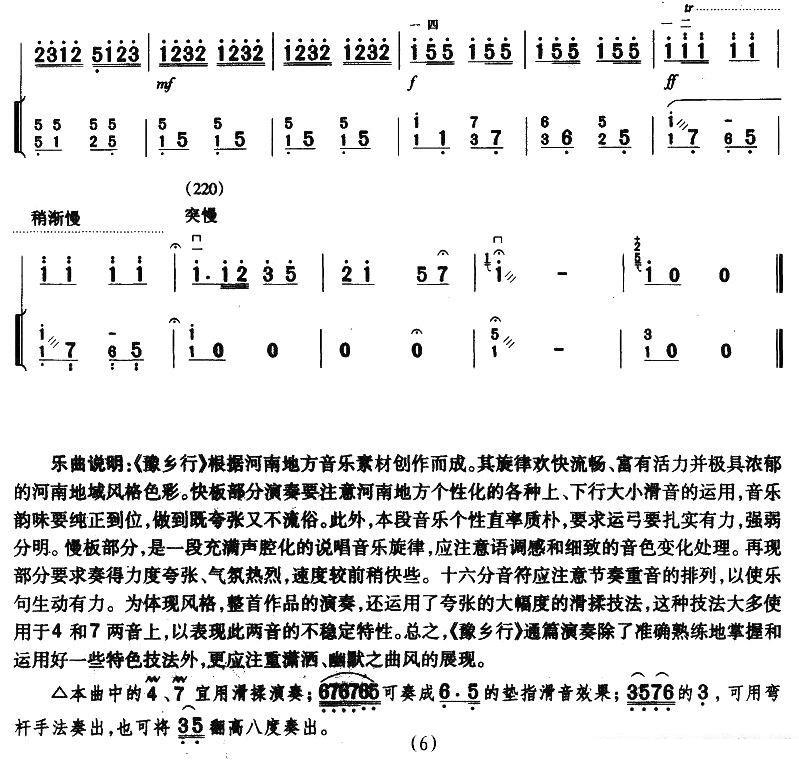 一 四 一 二 tr
2312 5123 | 1232 1232 | 1232 1232 | 155 155 | 155 155 | 111 11
mf f ff
5 5 5 5 | 5 5 | 5 5 | i 7 | 6 5 | i -
5 1 2 5 | 1 5 1 5 | 1 5 1 5 | 1 1 3 7 | 3 6 2 5 | 1 7 6 5
(220)
稍渐慢 突慢
i i i i | i. i2 3 5 | 2 i 5 7 | i - | i 0 0
i - | i | | 5 | 3
1 7 6 5 | 1 0 0 0 | 0 0 0 | 1 - | 1 0 0
乐曲说明:《豫乡行》根据河南地方音乐素材创作而成。其旋律欢快流畅、富有活力并极具浓郁
的河南地域风格色彩。快板部分演奏要注意河南地方个性化的各种上、下行大小滑音的运用,音乐
韵味要纯正到位,做到既夸张又不流俗。此外,本段音乐个性直率质朴,要求运弓要扎实有力,强弱
分明。慢板部分,是一段充满声腔化的说唱音乐旋律,应注意语调感和细致的音色变化处理。再现
部分要求奏得力度夸张、气氛热烈,速度较前稍快些。十六分音符应注意节奏重音的排列,以使乐
句生动有力。为体现风格,整首作品的演奏,还运用了夸张的大幅度的滑揉技法,这种技法大多使
用于4 和7 两音上,以表现此两音的不稳定特性。总之,《豫乡行》通篇演奏除了准确熟练地掌握和
运用好一些特色技法外,更应注重潇洒、幽默之曲风的展现。
△本曲中的4、7 宜用滑揉演奏;676765可奏成6.5的垫指滑音效果;3576的3,可用弯
杆手法奏出,也可将35翻高八度奏出。
(6)